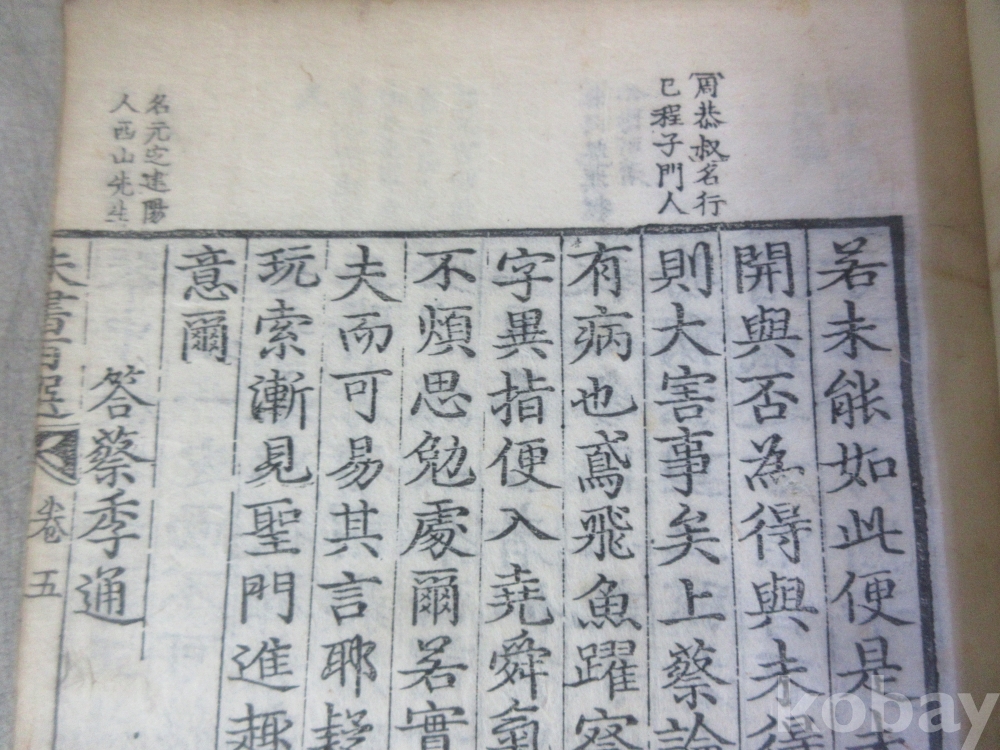 周恭叔名行
已程子門人
若未能如此便是
開與否為得與未得
則大害事矣上蔡論
有病也鳶飛魚躍察
字異指便入堯舜氣
不煩思勉處爾若實
夫而可易其言耶疑
玩索漸見聖門進趣
意爾
名元定建陽
人西山先生
答蔡季通
朱書百選 卷五
kobay